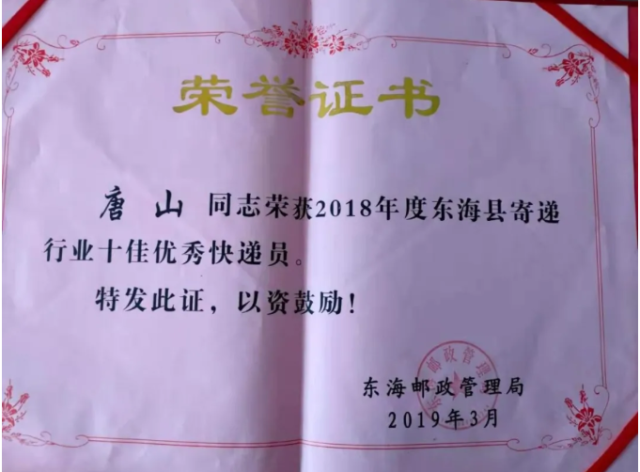 荣誉证书
唐山 同志荣获2018年度东海县寄递
行业十佳优秀快递员。
特发此证，以资鼓励！
东海邮政管理局
2019年3月